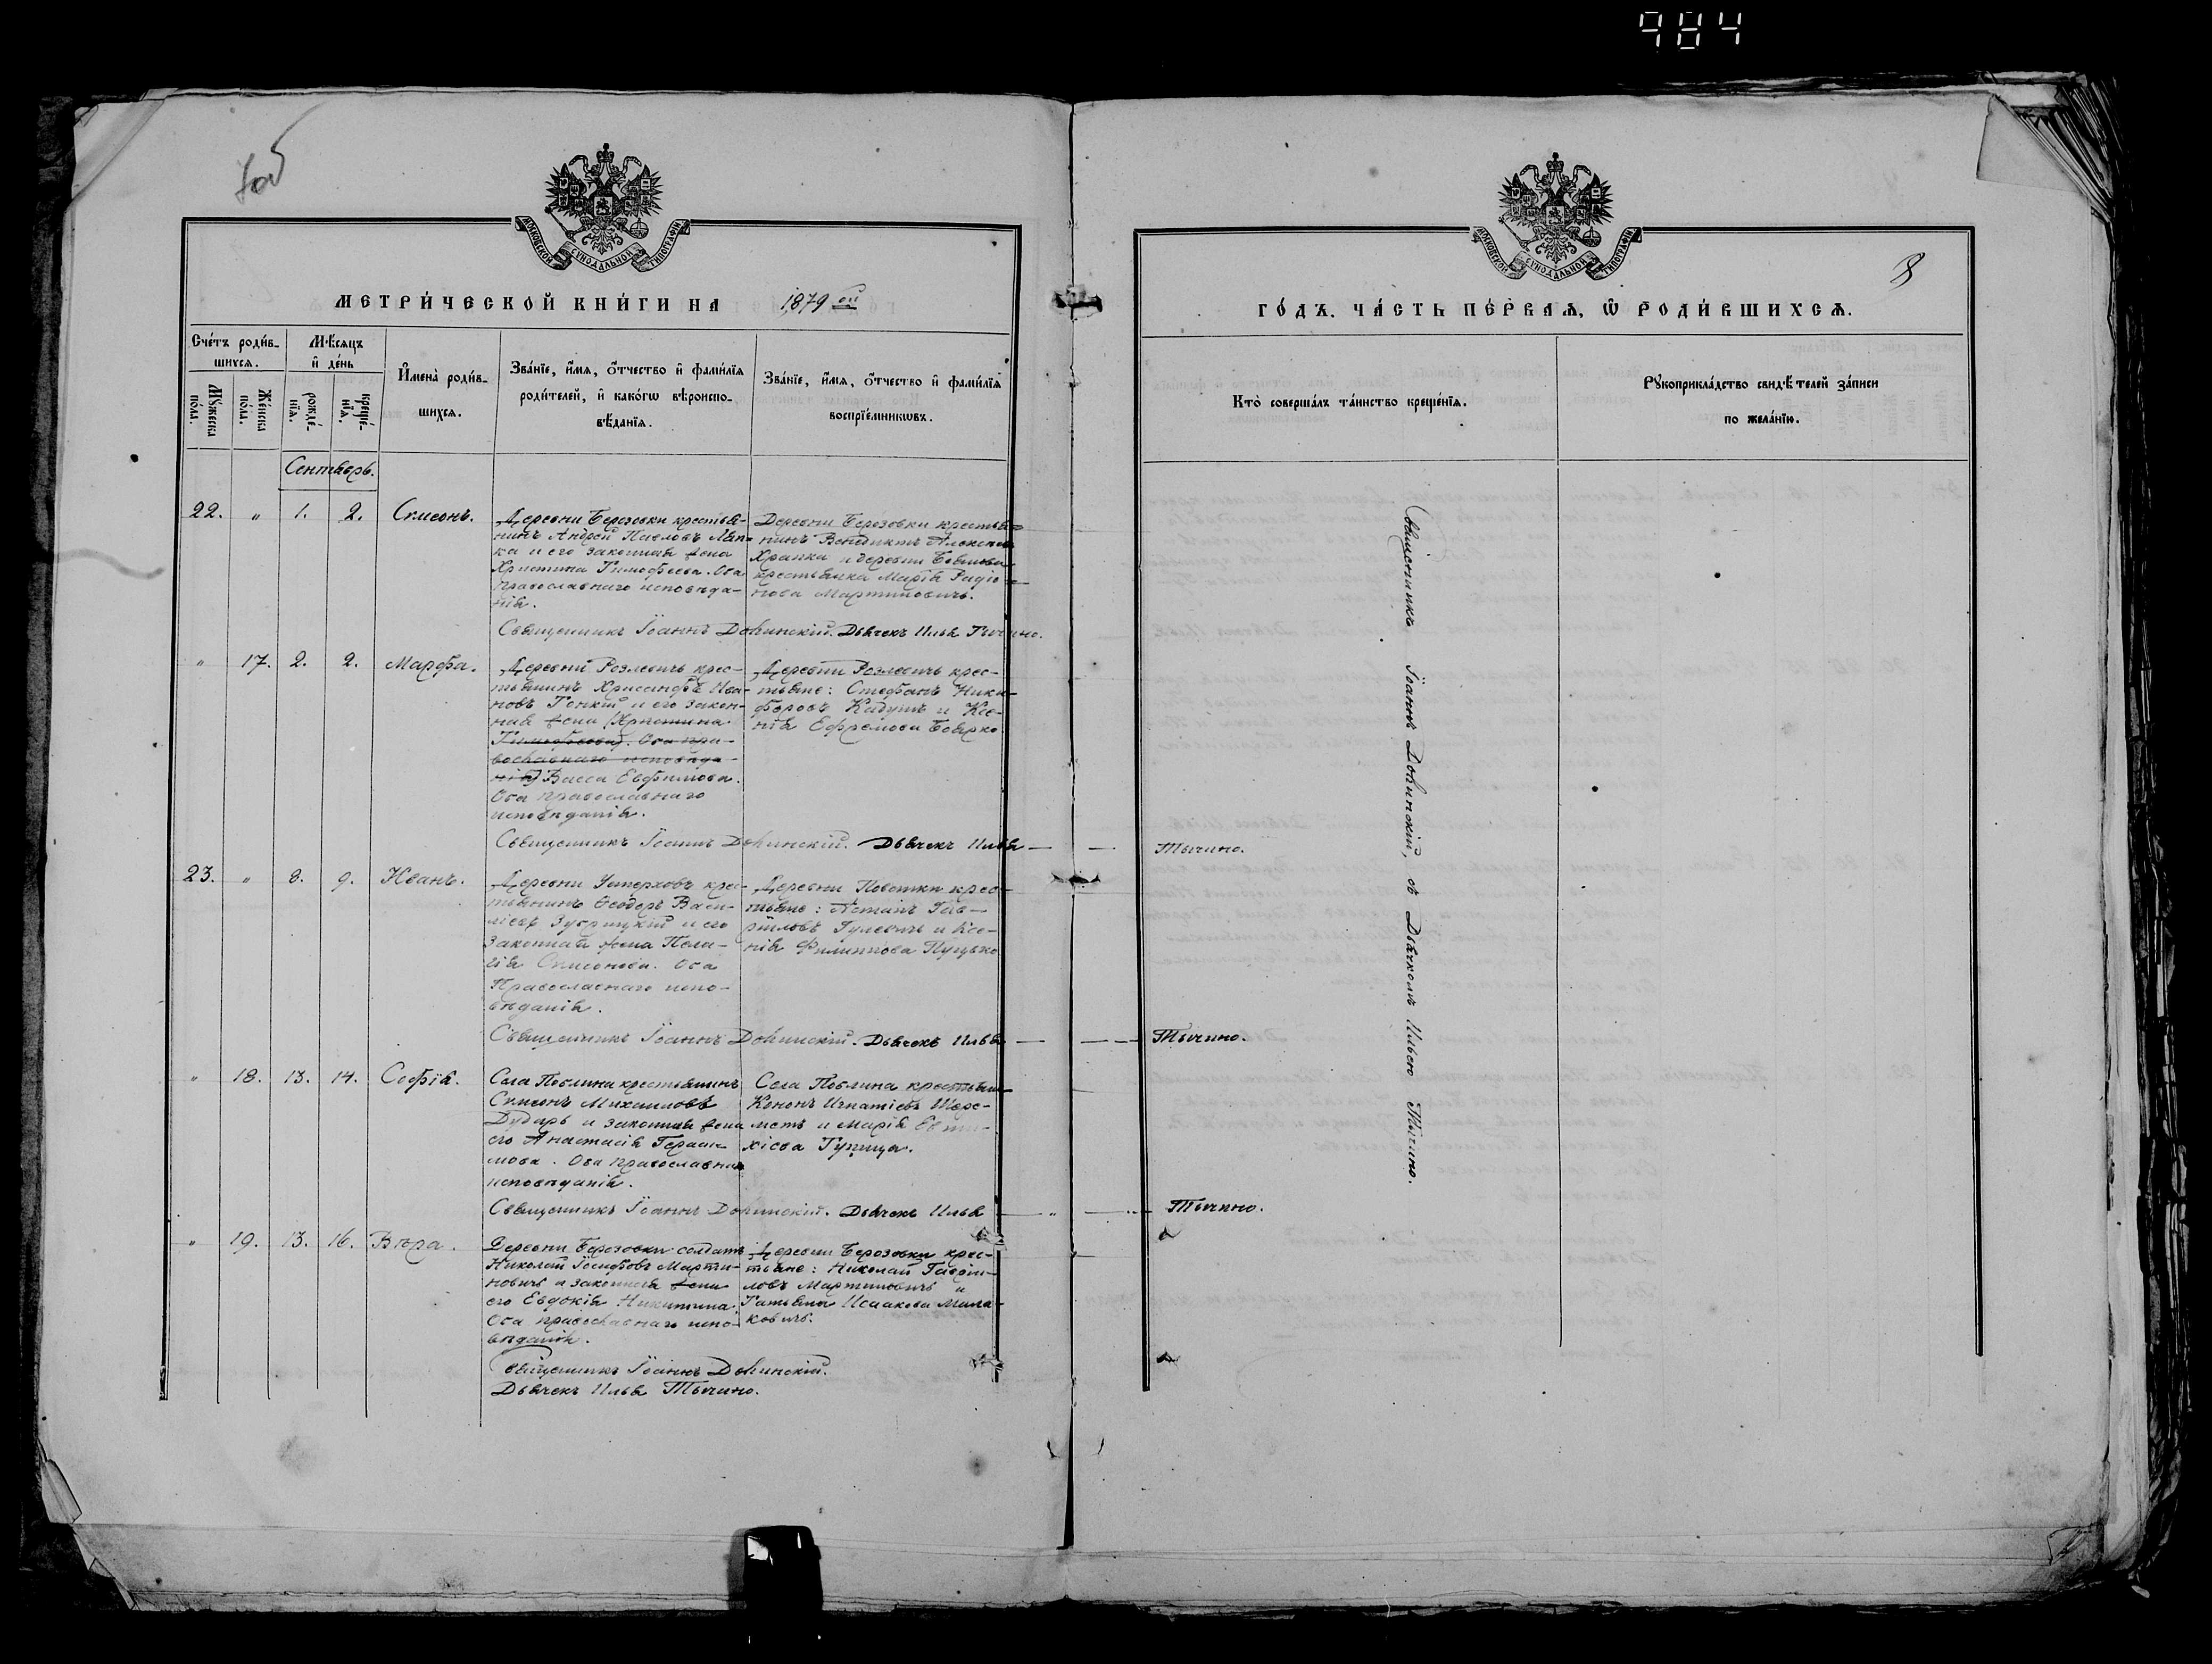 984
МОСКОВСКОЙ СѴНОДАЛЬНОЙ ТИПОГРАФІИ
МЕТРИ́ЧЕСКОЙ КНИ́ГИ НА 1879 ый
Сче́тъ роди́в-
шихсѧ.
Мѣ́сѧцъ
и҆ де́нь
И҆мена̀ роди́в-
шихсѧ.
Зва́нїе, и҆́мѧ, ѻ҆́тчество и҆ фами́лїѧ
роди́телей, и҆ како́гѡ вѣроиспо-
вѣ́данїѧ.
Зва́нїе, и҆́мѧ, ѻ҆́тчество и҆ фами́лїѧ
воспрїе́мникѡвъ.
Мꙋ́жеска
по́ла.
Же́нска
по́ла.
рожде́-
нїѧ.
креще́-
нїѧ.
Сентябрь.
22. „ 1. 2. Симеонъ.
Деревни Березовки крестья-
нинъ Андрей Павловъ Ляп-
ка и его законная жена
Христина Тимофеева. Оба
православнаго исповѣда-
нія.
Деревни Березовки крестья-
нинъ Венедиктъ
Храпка и деревни
крестьянка Марія Радіо-
нова Мартиновичъ.
Священникъ Іоаннъ Долинскій. Дьячекъ Илья Тычино.
„ 17. 2. 2. Марфа.
Деревни Розлевичъ крес-
тьянинъ Хрисанфъ Ива-
новъ Тонкій и его закон-
ная жена (Христина
Тимофеева). Оба пра-
вославнаго исповѣда-
нія) Васса Евфимова.
Оба православнаго
исповѣданія.
Деревни Розлевичъ крес-
тьяне: Стефанъ Ники-
форовъ Кадушъ и Ксе-
нія Ефремова Боярко.
Священникъ Іоаннъ Долинскій. Дьячекъ Илья —
23. „ 8. 9. Иванъ.
Деревни Уперховъ крес-
тьянинъ Ѳеодоръ Васи-
ліевъ Зубрицкій и его
законная жена Пела-
гія Симеонова. Оба
Православнаго испо-
вѣданія.
Деревни крес-
тьяне: Гав-
ріиловъ Гулевичъ и Ксе-
нія Филиппова Пуцько.
Священникъ Іоаннъ Долинскій. Дьячекъ Илья —
„ 18. 13. 14. Софія.
Села крестьянинъ
Симеонъ Михаиловъ
Дударь и законная жена
его Анастасія Гераси-
мова. Оба православнаго
исповѣданія.
Села крестьяне
Кононъ Игнатіевъ Шере-
метъ и Марія Евти-
хіева Гурица.
Священникъ Іоаннъ Долинскій. Дьячекъ Илья
„ 19. 13. 16. Вѣра.
Деревни Березовки солдатъ
Николай Іосифовъ Марти-
новичъ и законная жена
его Евдокія Никитина.
Оба православнаго испо-
вѣданія.
Деревни Березовки крес-
тьяне: Николай Гавріи-
ловъ Мартиновичъ и
Татьяна Исаакова Мила-
ковичъ.
Священникъ Іоаннъ Долинскій.
Дьячекъ Илья Тычино.
8
МОСКОВСКОЙ СѴНОДАЛЬНОЙ ТИПОГРАФІИ
ГО́ДЪ. ЧА́СТЬ ПЕ́РВАѦ, Ѽ РОДИ́ВШИХСѦ.
Кто̀ соверша́лъ та́инство креще́нїѧ.
Рꙋкоприкла́дство свидѣ́телей за́писи
по жела́нїю.
Священникъ Іоаннъ Долинскій, съ Дьячкомъ Ильею Тычино.
Тычино.
Тычино.
Тычино.